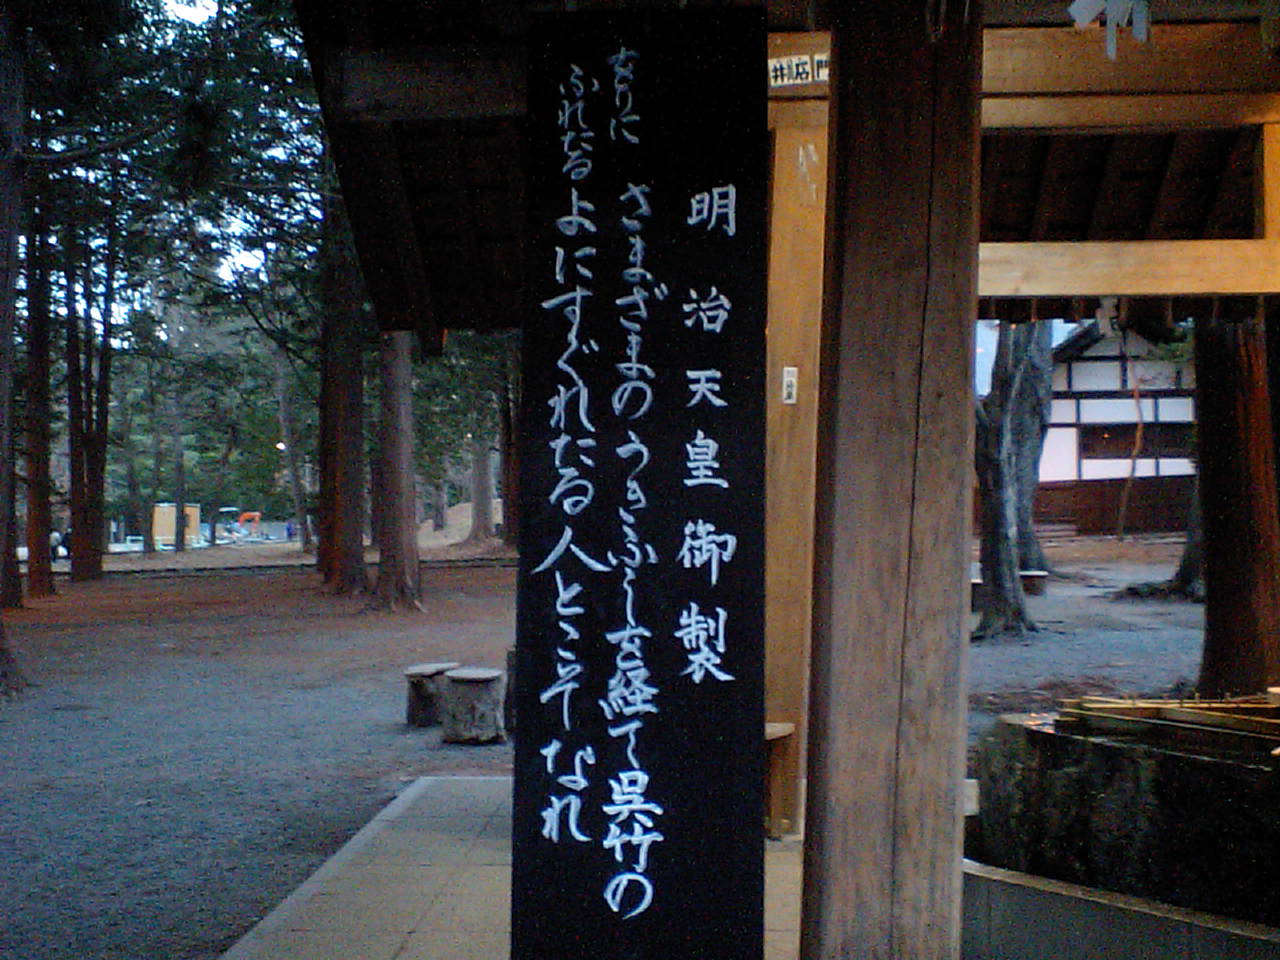 明治天皇御製
をりに
ふれたる
さまざまのうきふしを経て呉竹の
よにすぐれたる人とこそなれ